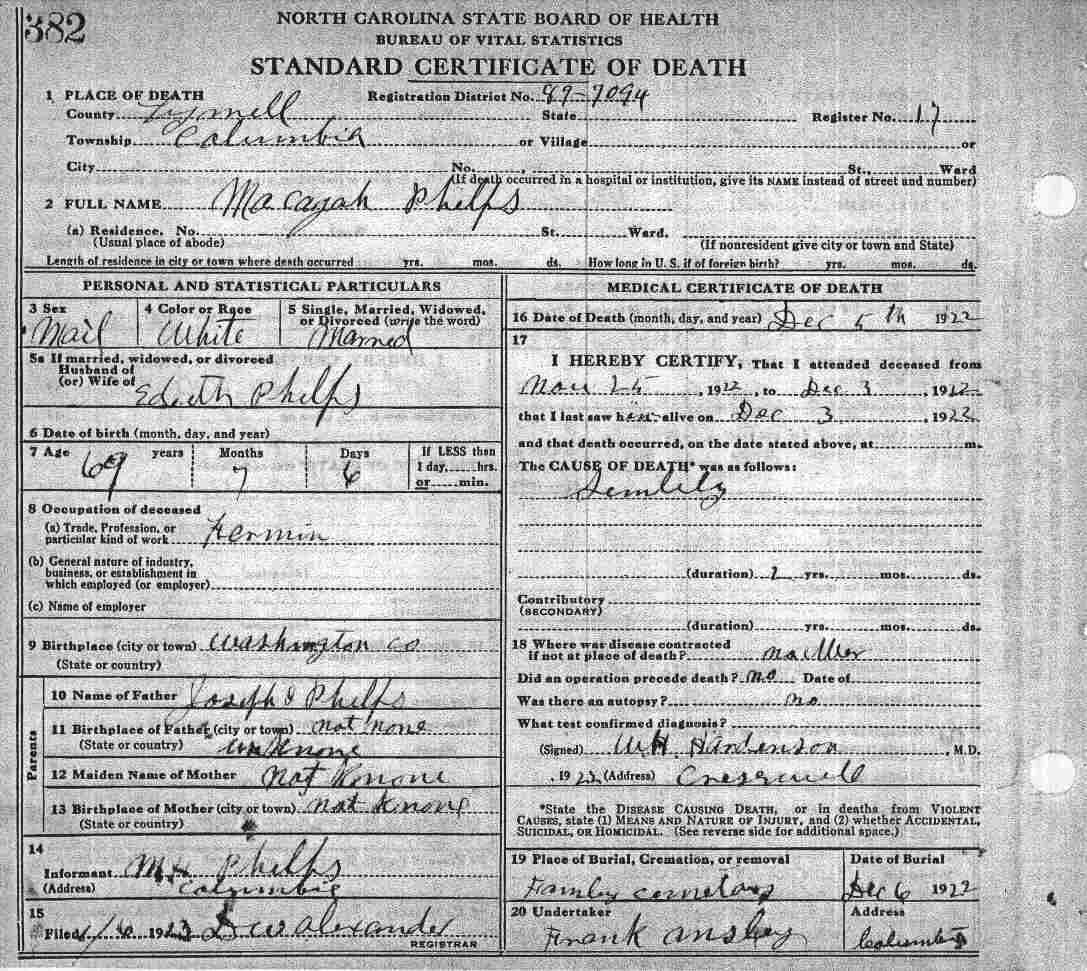 382
NORTH CAROLINA STATE BOARD OF HEALTH
BUREAU OF VITAL STATISTICS
STANDARD CERTIFICATE OF DEATH
1 PLACE OF DEATH Registration District No. 89-7094
County Tyrrell State Register No. 17
Township Columbia or Village or
City No. , St., Ward
(If death occurred in a hospital or institution, give its NAME instead of street and number)
2 FULL NAME Macajah Phelps
(a) Residence. No. St. Ward.
(Usual place of abode) (If nonresident give city or town and State)
Length of residence in city or town where death occurred yrs. mos. ds. How long in U. S. if of foreign birth? yrs. mos. ds.
PERSONAL AND STATISTICAL PARTICULARS
3 Sex 4 Color or Race 5 Single, Married, Widowed,
or Divorced (write the word)
Mail White Married
5a If married, widowed, or divorced
Husband of
(or) Wife of Edeth Phelps
6 Date of birth (month, day, and year)
7 Age years Months Days If LESS than
1 day, hrs.
or min.
69 7 6
8 Occupation of deceased
(a) Trade, Profession, or
particular kind of work Fermin
(b) General nature of industry,
business, or establishment in
which employed (or employer)
(c) Name of employer
9 Birthplace (city or town) Washington Co
(State or country)
Parents
10 Name of Father Joseph Phelps
11 Birthplace of Father (city or town) not none
(State or country) unknone
12 Maiden Name of Mother Not Knone
13 Birthplace of Mother (city or town) Not Knone
(State or country)
14
Informant M H Phelps
(Address) Columbia
15
Filed 1/6 1923 D W Alexander
REGISTRAR
MEDICAL CERTIFICATE OF DEATH
16 Date of Death (month, day, and year) Dec 5th 1922
17
I HEREBY CERTIFY, That I attended deceased from
Nov 25, 1922, to Dec 3, 1922
that I last saw him alive on Dec 3, 1922
and that death occurred, on the date stated above, at m.
The CAUSE OF DEATH* was as follows:
(duration) yrs. mos. ds.
Contributory
(SECONDARY)
(duration) yrs. mos. ds.
18 Where was disease contracted
if not at place of death?
Did an operation precede death? no Date of
Was there an autopsy? no
What test confirmed diagnosis?
(Signed) W H Hardenson, M.D.
, 1923 (Address) Creswell
*State the DISEASE CAUSING DEATH, or in deaths from VIOLENT
CAUSES, state (1) MEANS AND NATURE OF INJURY, and (2) whether ACCIDENTAL,
SUICIDAL, OR HOMICIDAL. (See reverse side for additional space.)
19 Place of Burial, Cremation, or removal Date of Burial
Family cemetary Dec 6 1922
20 Undertaker Address
Frank Ansley Columbia